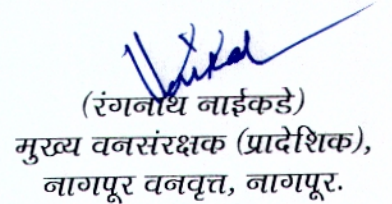 (रंगनाथ नाईकडे)
मुख्य वनसंरक्षक (प्रादेशिक),
नागपूर वनवृत्त, नागपूर.